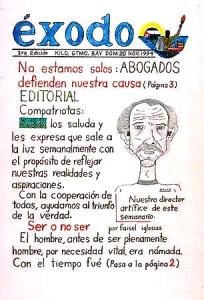 éxodo
1ra Edición KILO, GTMO. BAY DOM. 20 NOV. 1994
No estamos solos: ABOGADOS
defienden nuestra causa (Página 3)
EDITORIAL
Compatriotas:
los saluda y
les expresa que sale a
la luz semanalmente con
el propósito de reflejar
nuestras realidades y
aspiraciones.
Con la cooperación de
todos, ayudamos al triunfo
de la verdad.
Nuestro director
artífice de este
semanario.
Ser o no ser
por Faisel iglesias
El hombre, antes de ser plenamente
hombre, por necesidad vital, era nómada.
Con el tiempo fué (Pasa a la página 2)